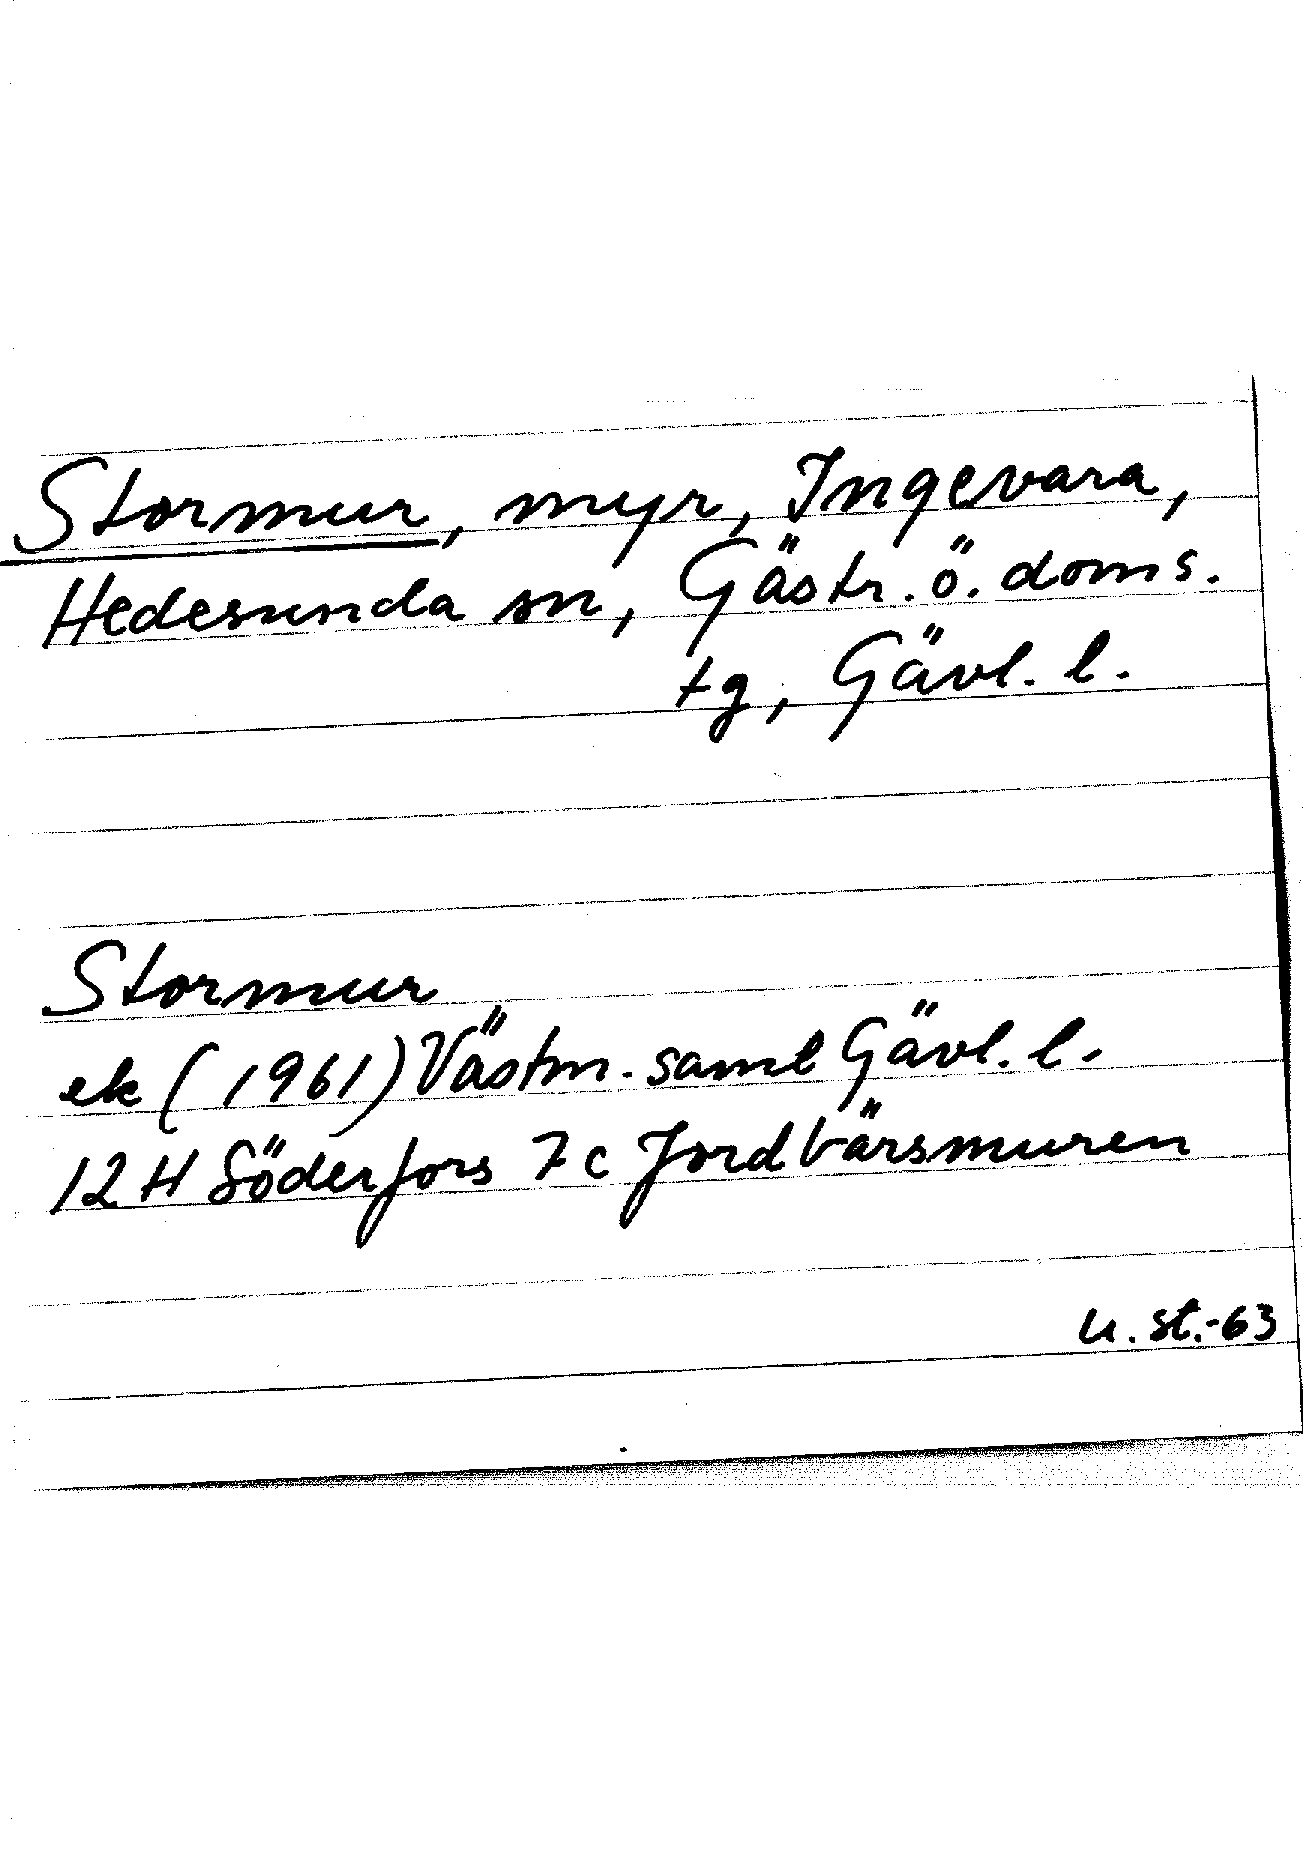 Stormur, myr, Ingevara,
Hedesunda sn, Gästr. ö. doms.
tg, Gävl. l.
Stormur
ek (1961) Västm. saml Gävl. l.
12 H Söderfors 7 c Jordbärsmuren
u. st.-63